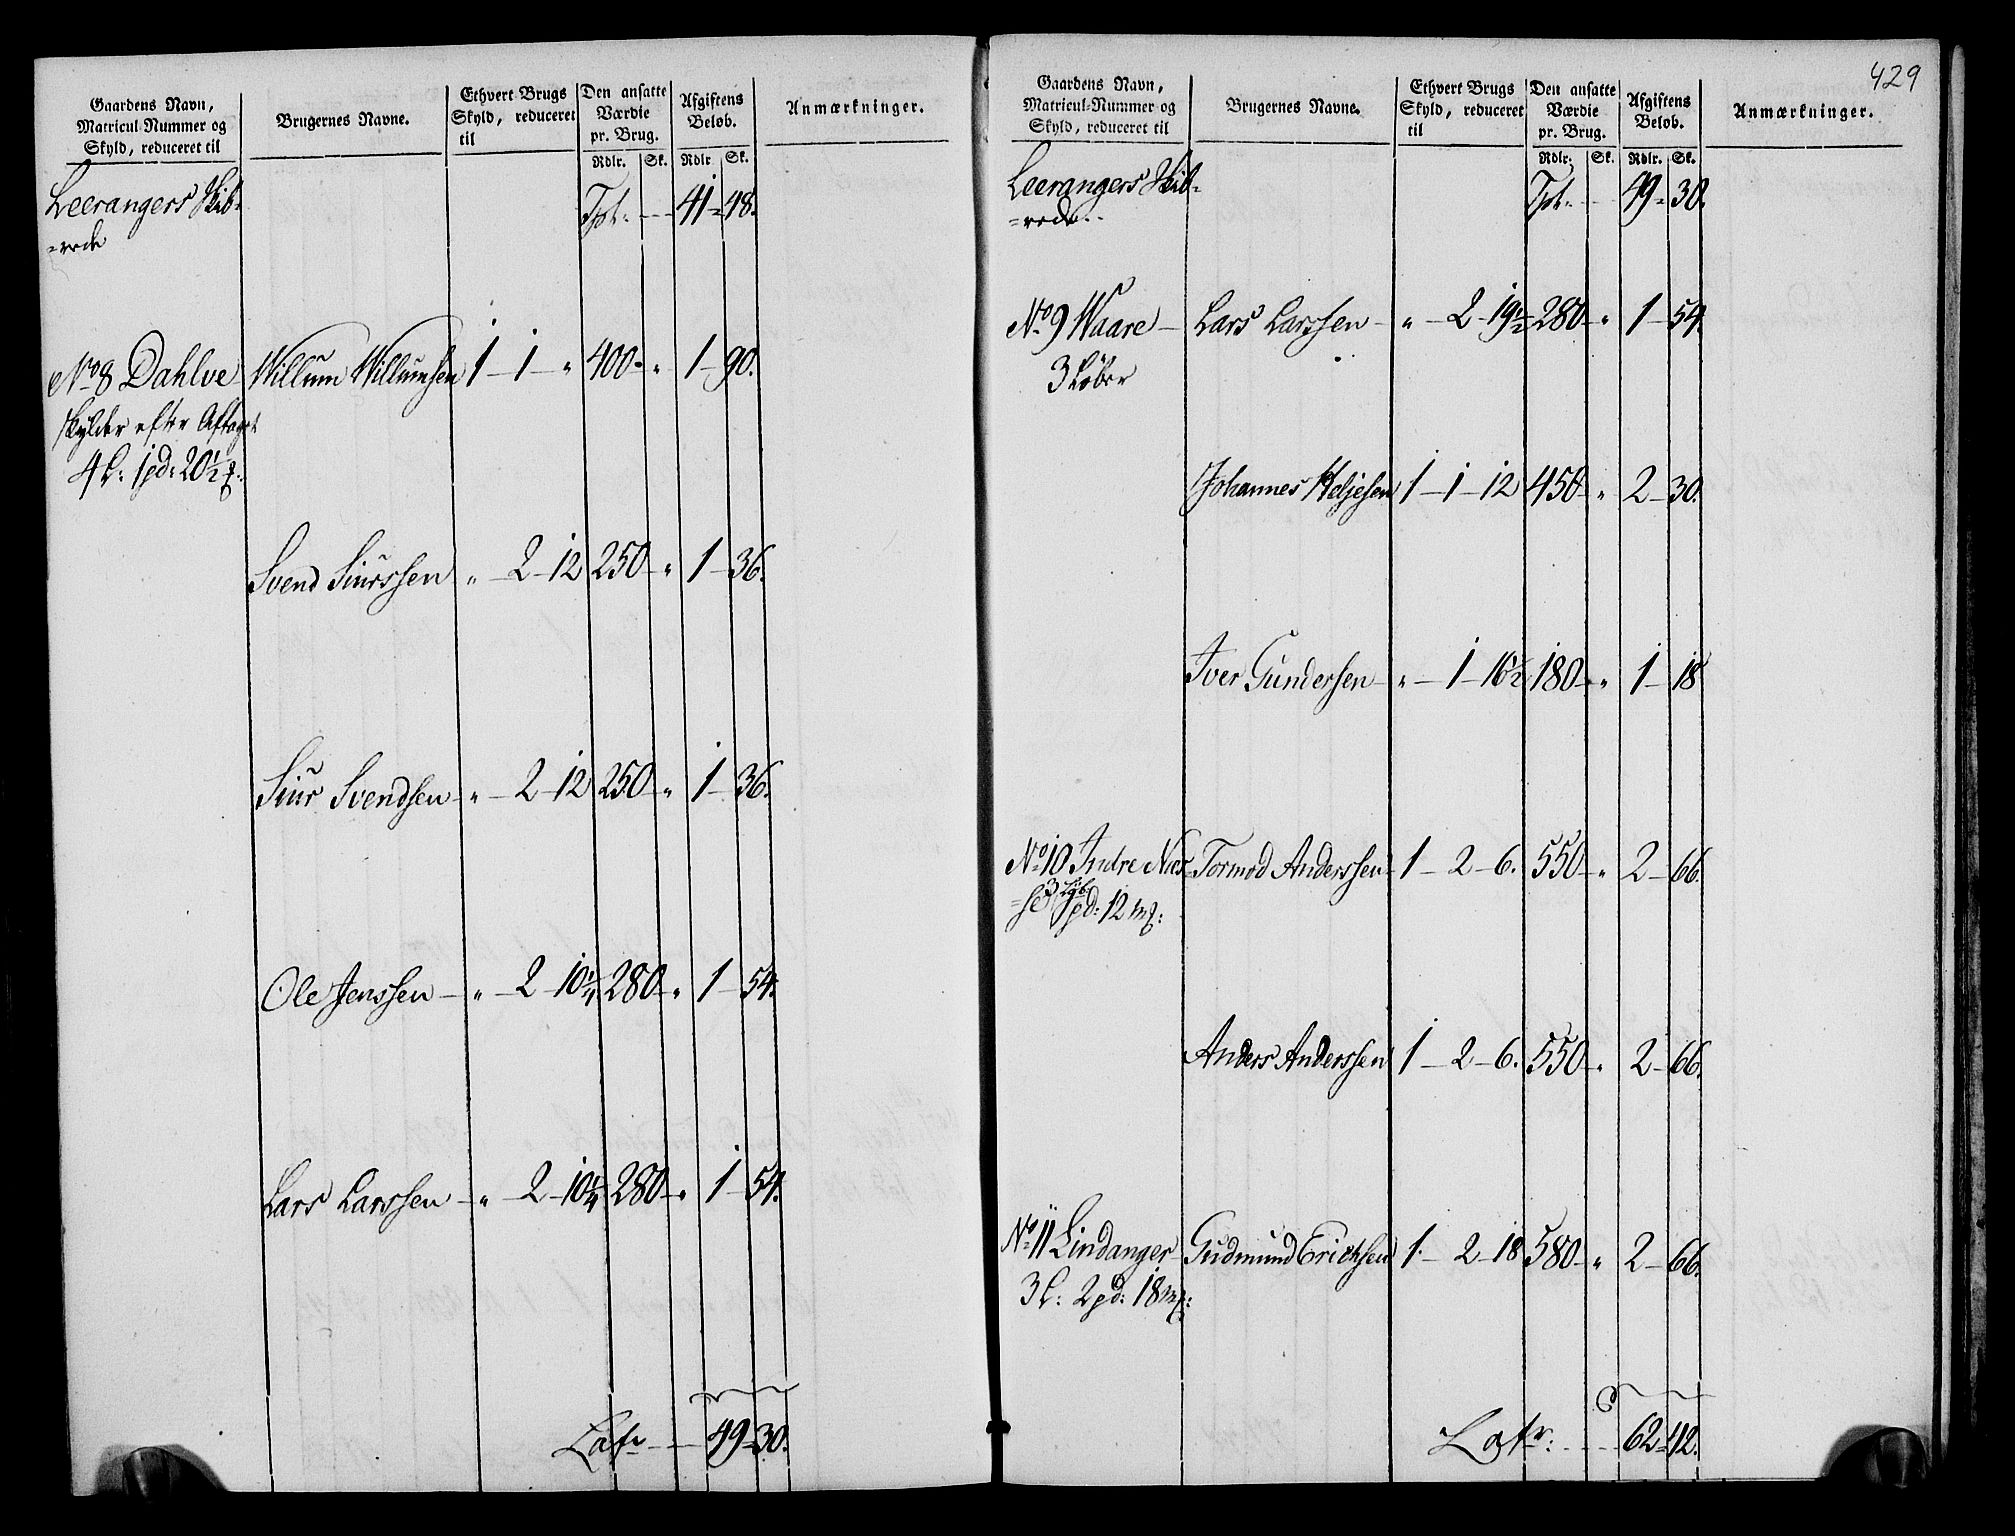 Gaardens Navn,
Matricul-Nummer og
Skyld, reduceret til
Brugernes Navne.
Ethvert Brugs
Skyld, reduceret
til
Den ansatte
Værdie
pr. Brug.
Afgiftens
Beløb.
Anmærkninger.
Rdlr. Sk. Rdlr. Sk.
Leerangers Skib-
=rede
Tpt. 41 = 48.
No 8 Dahlve Willum Willumsen 1 - 1 - " 400 - " 1 - 90.
skylder efter Aftaget
4 L: 1 pd: 20½ m:
Svend Siurssen " - 2 - 12 250 - " 1 - 36.
Siur Svendsen - " - 2 - 12 250 - " 1 - 36.
Ole Jenssen - " - 2 - 10¼ 280 - " 1 - 54.
Lars Larssen - " - 2 - 10¼ 280 - " 1 - 54.
Lat. 49 = 30.
429
Gaardens Navn,
Matricul-Nummer og
Skyld, reduceret til
Brugernes Navne.
Ethvert Brugs
Skyld, reduceret
til
Den ansatte
Værdie
pr. Brug.
Afgiftens
Beløb.
Anmærkninger.
Rdlr. Sk. Rdlr. Sk.
Leerangers Skib-
=rede.
Tpt. 49 = 30.
No 9 Waare - Lars Larssen - " - 2 - 19½ 280 - " 1 - 54.
3 Løber
Johannes Heljesen 1 - 1 - 12 450 - " 2 - 30.
Iver Gundersen - " - 1 - 16½ 180 - " 1 - 18
No 10 Indre Næs- Tormod Anderssen 1 - 2 - 6. 550 - " 2 - 66.
=se 3 Løb 1 pd: 12 mk:
Anders Anderssen 1 - 2 - 6. 550 - " 2 - 66.
No 11 Lindanger Gudmund Erichsen 1 - 2 - 18 580 - " 2 - 66.
3 L: 2 pd: 18 mk:
Latr: 62 = 42.